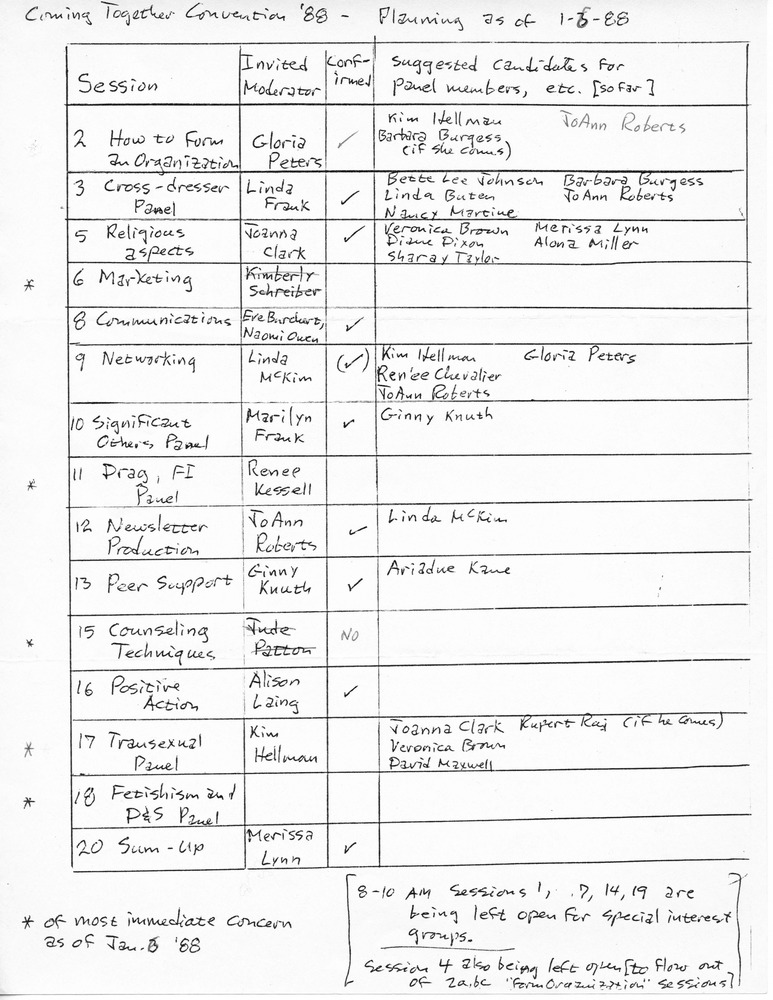 Coming Together Convention '88 - Planning as of 1-8-88
Session
Invited
Moderator
Conf-
irmed
Suggested candidates for
Panel members, etc. [so far]
2 How to Form
an Organization
Gloria
Peters
✓
Kim Hellman JoAnn Roberts
Barbara Burgess
(if she comes)
3 Cross-dresser
Panel
Linda
Frank
✓
Bette Lee Johnson Barbara Burgess
Linda Buten JoAnn Roberts
Nancy Martine
5 Religious
aspects
Joanna
Clark
✓
Veronica Brown Merissa Lynn
Diane Dixon Alona Miller
Sharay Taylor
* 6 Marketing
Kimberly
Schreiber
8 Communications
Eve Burchert,
Naomi Owen
✓
9 Networking
Linda
McKim
(✓)
Kim Hellman Gloria Peters
Ren'ee Chevalier
JoAnn Roberts
10 Significant
Others Panel
Marilyn
Frank
✓
Ginny Knuth
* 11 Drag, FI
Panel
Renee
Kessell
12 Newsletter
Production
JoAnn
Roberts
✓
Linda McKim
13 Peer Support
Ginny
Knuth
✓
Ariadne Kane
* 15 Counseling
Techniques
Jude
Patton
NO
16 Positive
Action
Alison
Laing
✓
* 17 Transexual
Panel
Kim
Hellman
Joanna Clark Rupert Raj (if he comes)
Veronica Brown
David Maxwell
* 18 Fetishism and
D&S Panel
20 Sum-Up
Merissa
Lynn
✓
* of most immediate concern
as of Jan. 8 '88
[8-10 AM Sessions 1, 7, 14, 19 are
being left open for special interest
groups.
Session 4 also being left open [to flow out
of 2a,b,c "form Organization" sessions]]